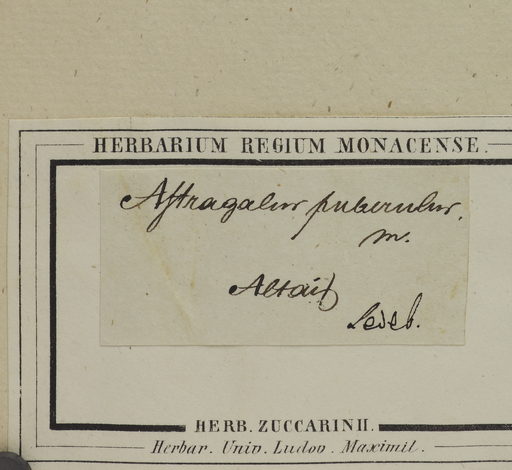 HERBARIUM REGIUM MONACENSE.
Astragalus puberulus.
m.
Altai
Ledeb.
HERB. ZUCCARINII.
Herbar. Univ. Ludov. Maximil.